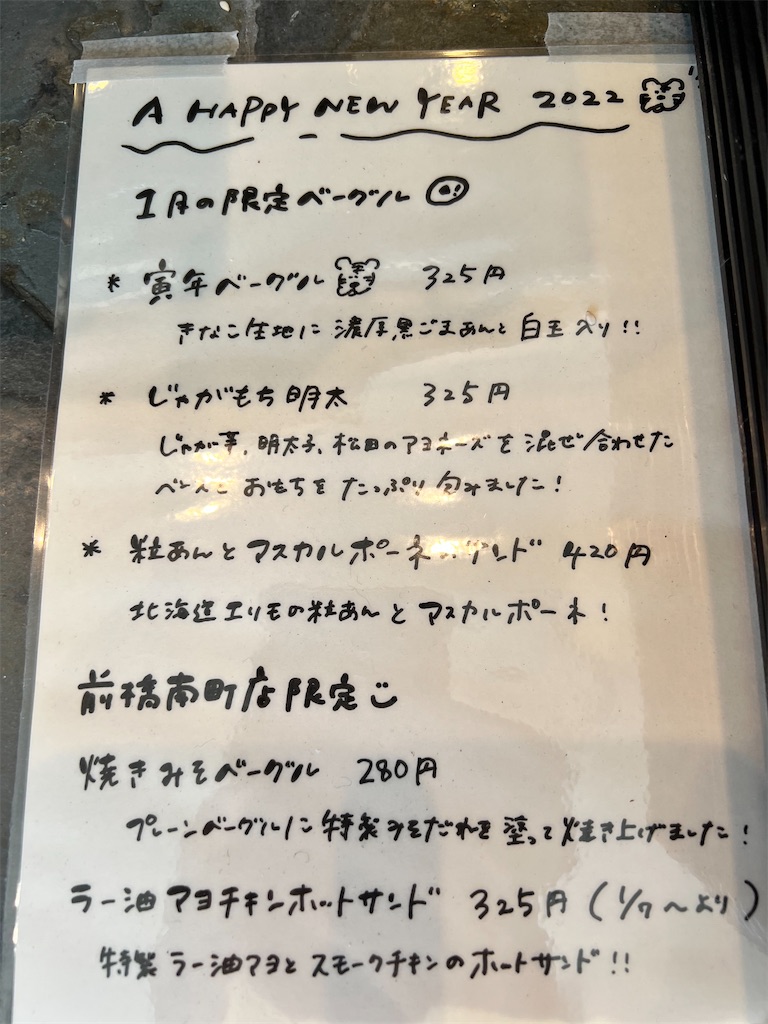 A HAPPY NEW YEAR 2022
1月の限定ベーグル
* 寅年ベーグル 325円
きなこ生地に 濃厚黒ごまあんと 白玉入り!!
* じゃがもち明太 325円
じゃが芋、明太子、松田のマヨネーズを 混ぜ合わせた
ベースと おもちを たっぷり 包みました!
* 粒あんとマスカルポーネのサンド 420円
北海道エリモの粒あんと マスカルポーネ!
前橋南町店限定
焼きみそベーグル 280円
プレーンベーグルに 特製みそだれを 塗って 焼き上げました!
ラー油マヨチキンホットサンド 325円 (1/7〜より)
特製 ラー油マヨと スモークチキンの ホットサンド!!